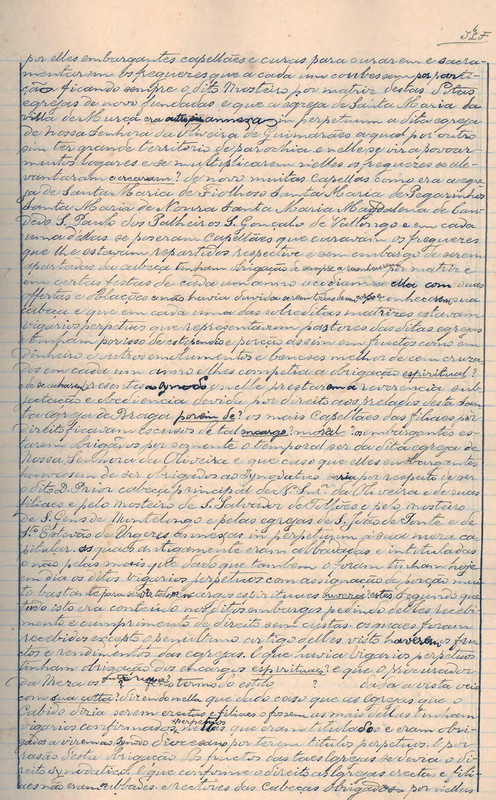 J. L. F
por elles embargantes capellães e curas para curarem e sacra-
mentarem os freguezes que a cada um coubessem por parti-
ção ficando sempre o dito Mosteiro por matriz destas Ditas
egrejas de novo fundadas e que a egreja de Santa Maria da
Villa de Murça era annexa in perpetuum a dita egreja
de Nossa Senhora da Oliveira de Guimarães a qual por outro
sim ter grande territorio de parochia e nelle se vir a povoar
muitos logares e se multiplicarem n'elles os freguezes se ale-
vantaram e crearam? de novo muitas Capellas como era a egre-
ja de Santa Maria de Fiolhoso Santa Maria de Pegarinhos
Santa Maria de Noura Santa Maria Magdalena de Can-
dedo S. Paulo dos Palheiros S. Gonçalo de Vallongo e em cada
uma d'ellas se poseram Capellães que curavam os freguezes
que lhe estavam repartidos respective e sem embargo de serem
apartadas da cabeça tinham obrigação sempre a reconhecer por matriz e
em certas festas de cada um anno accudiam a ella com suas
offertas e oblações e não havia duvida serem todas um corpo e
cabeça e que em cada uma das sobreditas matrizes estavam
vigarios perpetuos que representavam pastores das ditas egrejas
e tinham por isso de estipendio e porção assim em fructos como em
dinheiro e outros emolumentos e beneses melhor de cem cruza-
dos em cada um anno e lhes competia a obrigação espiritual?
e de se acharem presentes ao synodo e n'elle prestarem a reverencia sub-
jectação e obediencia devida por direito aos prelados desta San-
ta Egreja de Braga porem de? os mais Capellães das filiaes por
direito ficavam escusos de tal e os embargantes es-
tarem obrigados por somente o temporal ser da dita egreja de
Nossa Senhora da Oliveira e que caso que elles embargantes
houvessem de ser obrigados ao Synodatico seria por respeito de ser
o dito D. Prior cabeça principal de N. Snr.ª da Oliveira e de suas
filiaes e pelo Mosteiro de S. Salvador de Souto e pelo mosteiro
de S. Gens de Montelongo e pelas egrejas de S. João de Ponte e de
S.to Estevão de Urgezes annexas in perpetuum á sua mesa ca-
pitular as quaes antigamente eram abbadias e intituladas
e não pelas mais já dado que tambem o foram tinham hoje
em dia os ditos vigarios perpetuos com assignação de porção muito
bastante para sobre tal encargos espirituaes segundo que
tudo isto era conteudo nos ditos embargos pedindo d'elles recebi-
mento e cumprimento de direito sem custas os quaes foram
recebidos excepto o penultimo artigo delles visto haverem os fru-
ctos e rendimentos das egrejas. E que havia vigarios perpetuos
tinham obrigação dos encargos espirituaes? e que o procurador
da Mesa os no termo do estylo ? E dada a vista veio
com sua cotta? dizendo nella que dado caso que as egrejas que o
Cabido dizia serem erectas e filiaes o fossem as mais dellas tinham
vigarios confirmados perpetuos que eram titulados e eram obri-
gados a virem ao Synodo Diocesano por terem titulos perpetuos. E por
razão desta obrigação dos fructos das taes egrejas se devia o di-
reito Synodatico. E que conforme o direito as egrejas erectas e fili-
aes não eram tituladas e rectores das Cabeças obrigados por nellas